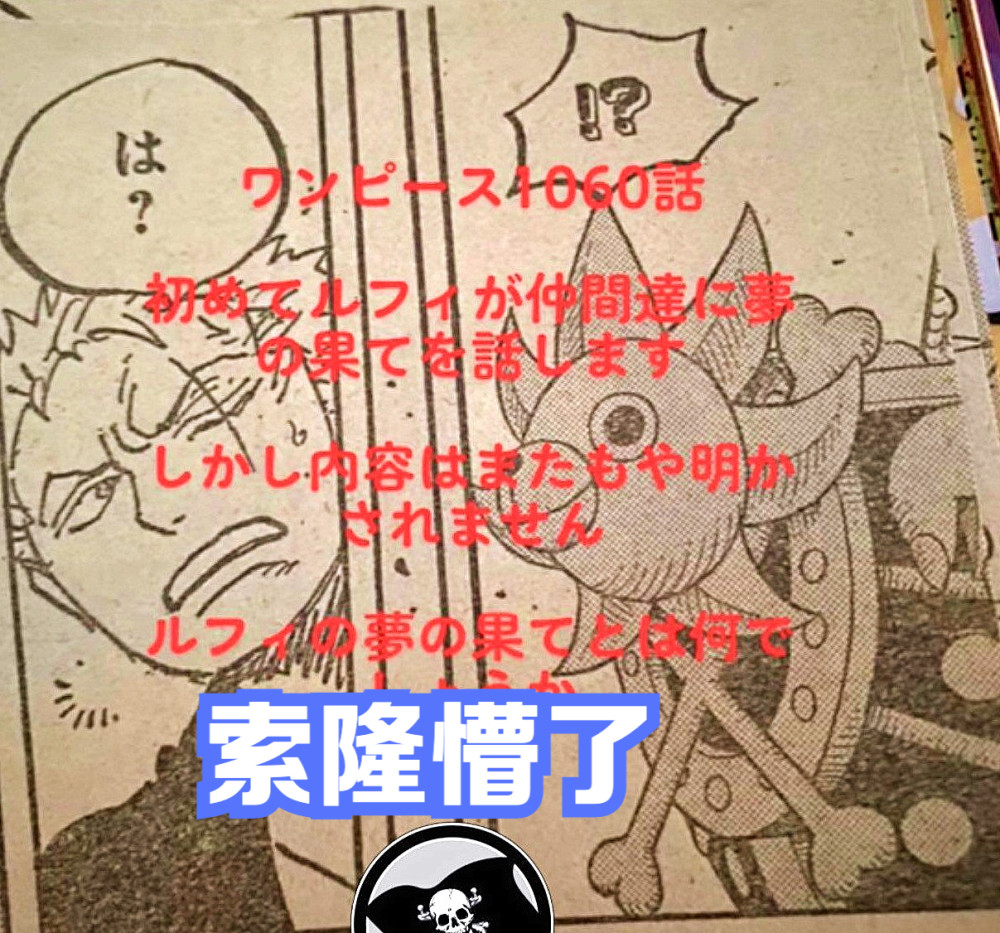 !?
は?
ワンピース1060話
初めてルフィが仲間達に夢
の果てを話します
しかし内容はまたもや明か
されません
ルフィの夢の果てとは何で
索隆懵了